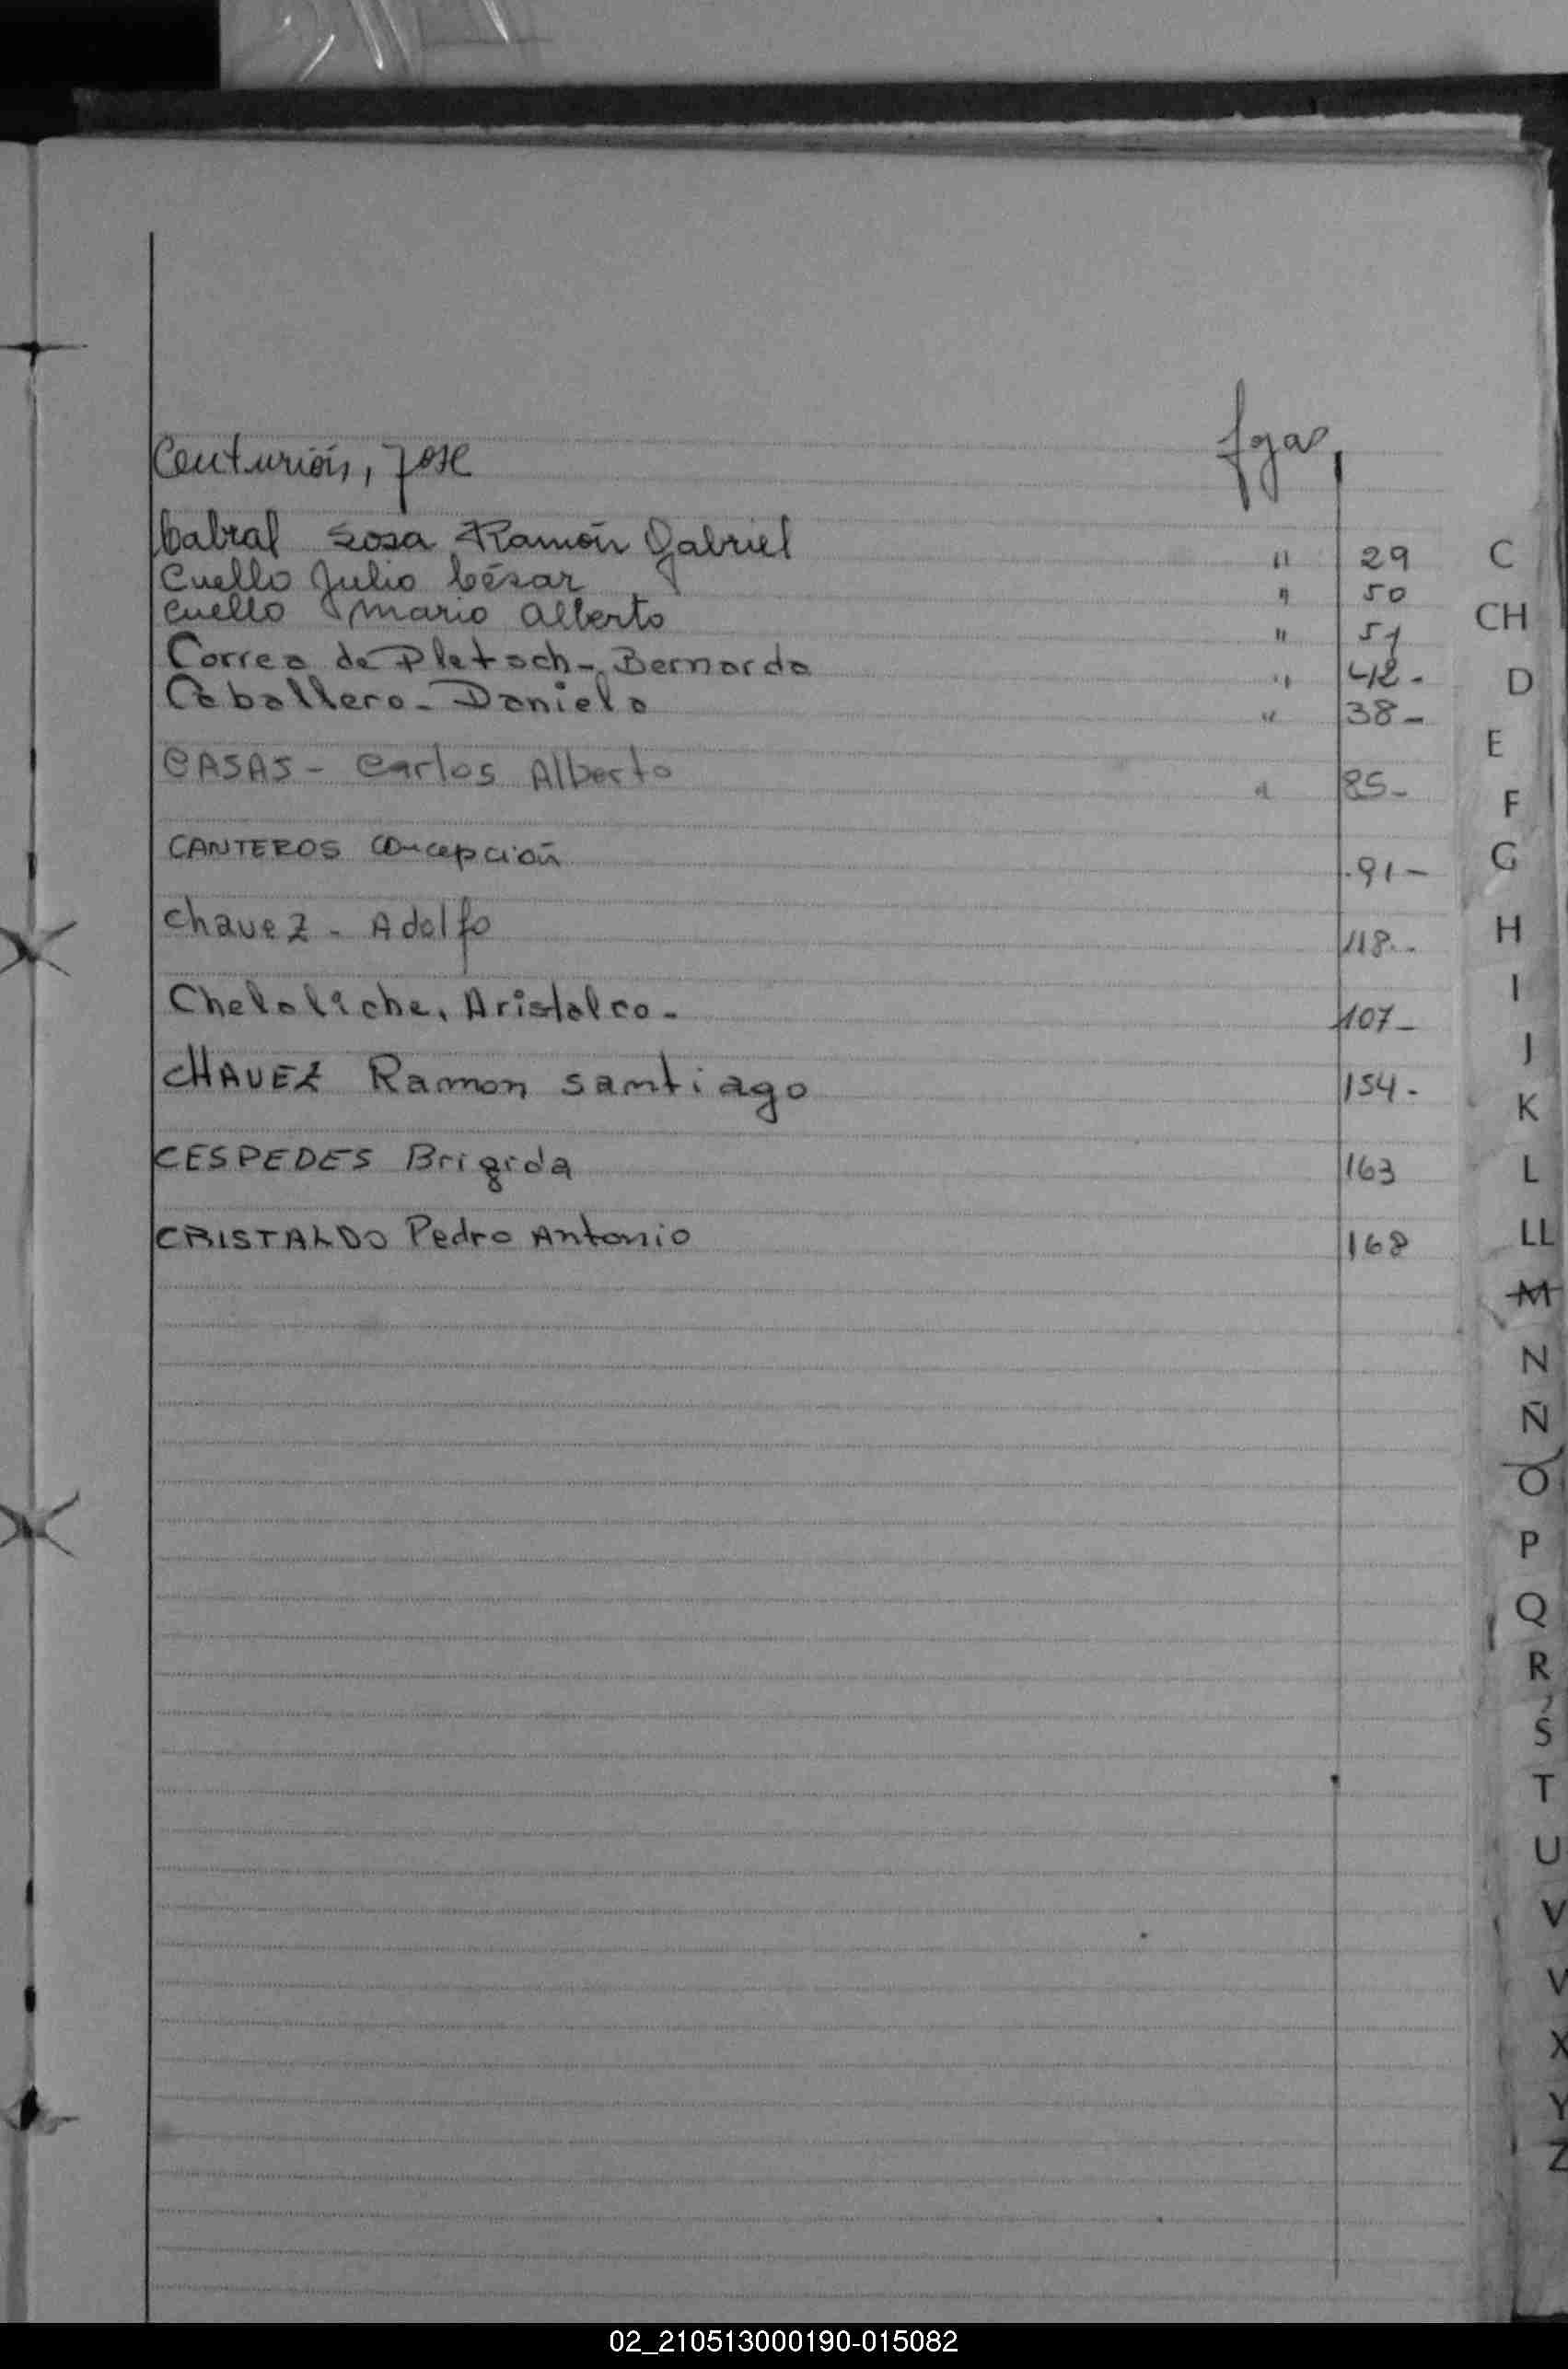 Centurión, José fojas
Cabral Sosa Ramón Gabriel " 29
Cuello Julio César " 50
Cuello Mario Alberto " 51
Correa de Pletsch - Bernarda " 42-
Caballero - Daniela " 38-
CASAS - Carlos Alberto " 85-
CANTEROS Concepción 91-
Chavez - Adolfo 118-
107-
CHAVEZ Ramon Santiago 154-
CESPEDES Brigida 163
CRISTALDO Pedro Antonio 168
C
CH
D
E
F
G
H
I
J
K
L
LL
M
N
Ñ
O
P
Q
R
S
T
U
V
V
X
Y
Z
02_210513000190-015082